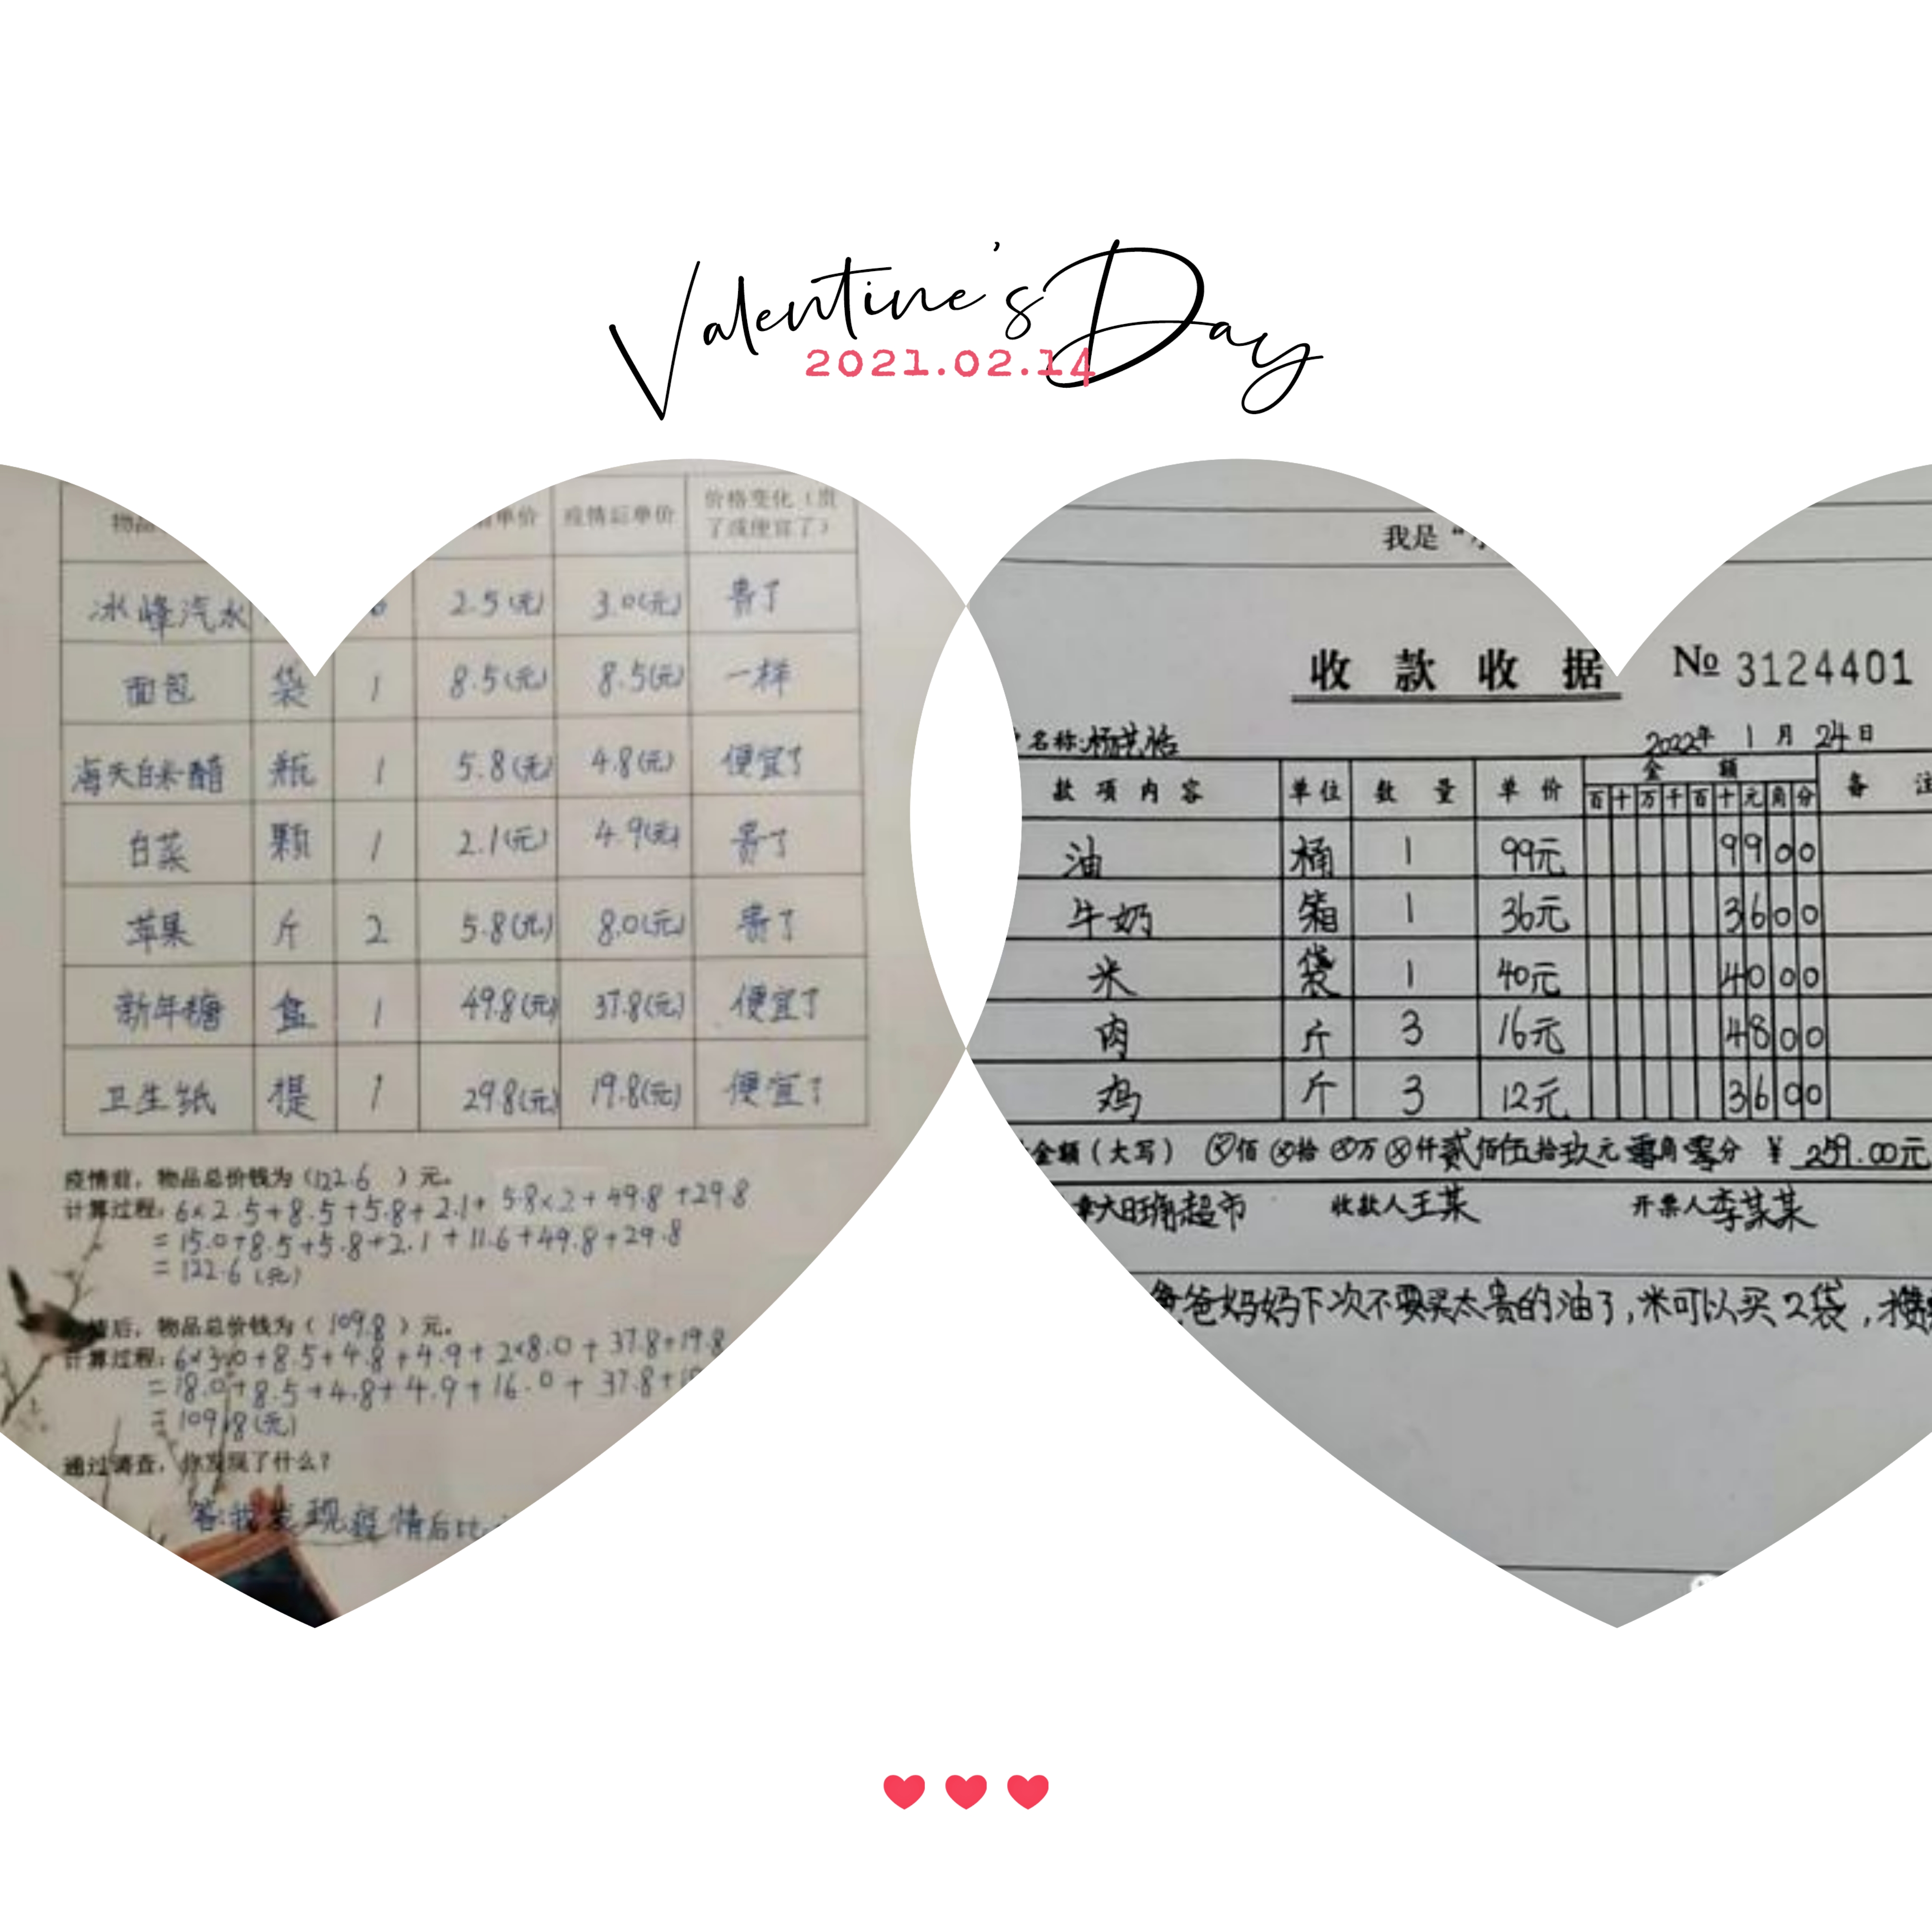 Valentine's Day
2021.02.14
单价 疫情后单价 价格变化（贵
了或便宜了）
冰峰汽水 2.5(元) 3.0(元) 贵了
面包 袋 1 8.5(元) 8.5(元) 一样
海天白米醋 瓶 1 5.8(元) 4.8(元) 便宜了
白菜 颗 1 2.1(元) 4.9(元) 贵了
苹果 斤 2 5.8(元) 8.0(元) 贵了
新年糖 盒 1 49.8(元) 37.8(元) 便宜了
卫生纸 提 1 29.8(元) 19.8(元) 便宜了
疫情前，物品总价钱为（122.6 ）元。
计算过程：6×2.5+8.5+5.8+2.1+5.8×2+49.8+29.8
=15.0+8.5+5.8+2.1+11.6+49.8+29.8
=122.6(元)
情后，物品总价钱为（109.8）元。
计算过程：6×3.0+8.5+4.8+4.9+2×8.0+37.8+19.8
=18.0+8.5+4.8+4.9+16.0+37.8+1
=109.8(元)
通过调查，你发现了什么？
答:我发现疫情后比
我是“
收款收据 № 3124401
名称: 2022年 1月 24日
款项内容 单位 数量 单价 金额 备注
百十万千百十元角分
油 桶 1 99元 9900
牛奶 箱 1 36元 3600
米 袋 1 40元 4000
肉 斤 3 16元 4800
鸡 斤 3 12元 3600
金额（大写） ⊗佰⊗拾⊗万⊗仟贰佰伍拾玖元零角零分 ¥ 259.00元
章大旺角超市 收款人王某 开票人李某某
爸爸妈妈下次不要买太贵的油了,米可以买2袋,